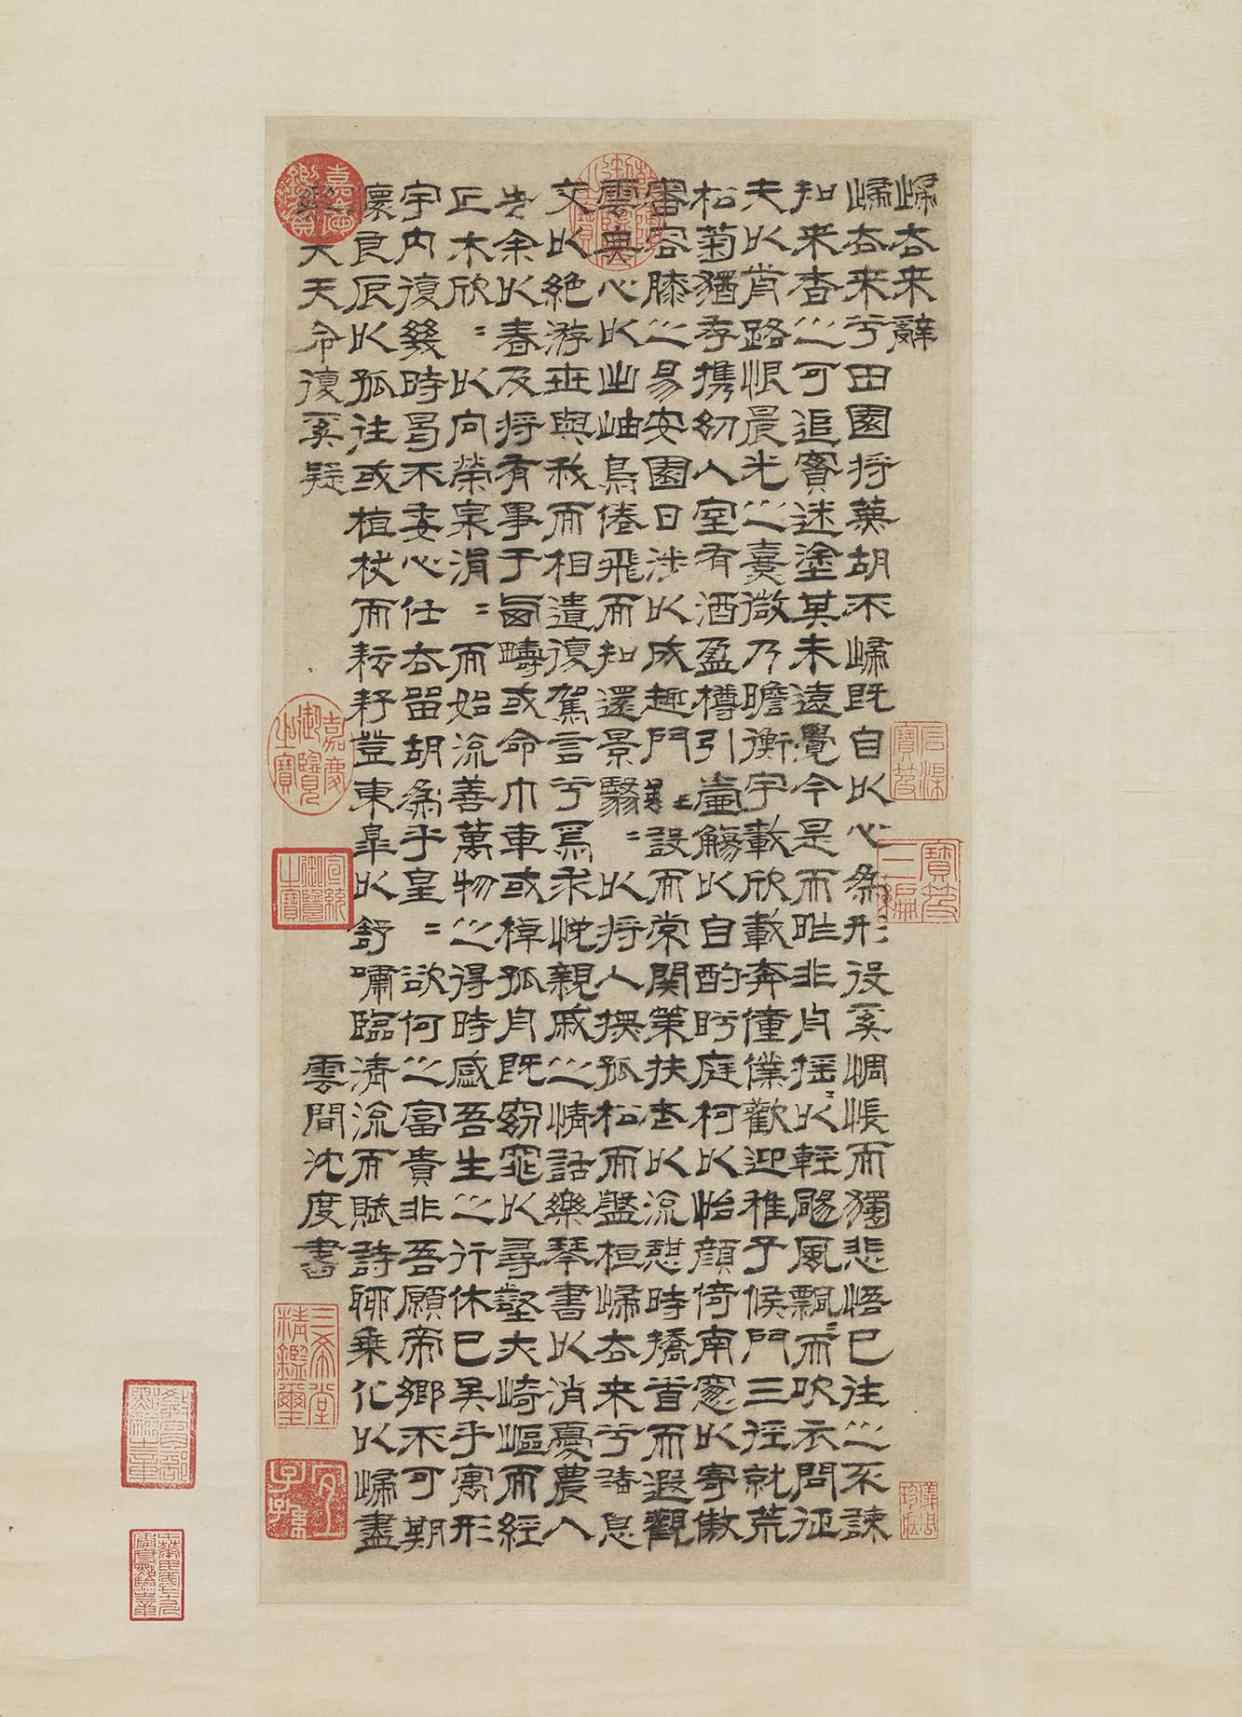 歸去来辭
歸去来兮田園将蕪胡不歸既自以心為形役奚惆悵而獨悲悟已往之不諫
知来者之可追實迷塗其未遠覺今是而昨非舟搖〻以輕颺風飄〻而吹衣問征
夫以前路恨晨光之熹微乃瞻衡宇載欣載奔僮僕歡迎稚子候門三徑就荒
松菊猶存攜幼入室有酒盈樽引壺觴以自酌眄庭柯以怡顏倚南窗以寄傲
審容膝之易安園日涉以成趣門雖設而常關策扶老以流憩時撟首而遐觀
雲無心以出岫鳥倦飛而知還景翳〻以将入撫孤松而盤桓歸去来兮請息
交以絕游世與我而相遺復駕言兮焉求悅親戚之情話樂琴書以消憂農人
告余以春及将有事于西疇或命巾車或棹孤舟既窈窕以尋壑亦崎嶇而經
丘木欣〻以向榮泉涓〻而始流善萬物之得時感吾生之行休已矣乎寓形
宇内復幾時曷不委心任去留胡為乎皇〻欲何之富貴非吾願帝鄉不可期
懷良辰以孤往或植杖而耘耔登東皋以舒嘯臨清流而賦詩聊乗化以歸盡
樂夫天命復奚疑
雲間沈度書
石渠寶笈
寶笈三編
嘉慶御覽之寶
宣統御覽之寶
三希堂精鑑璽
宜子孫